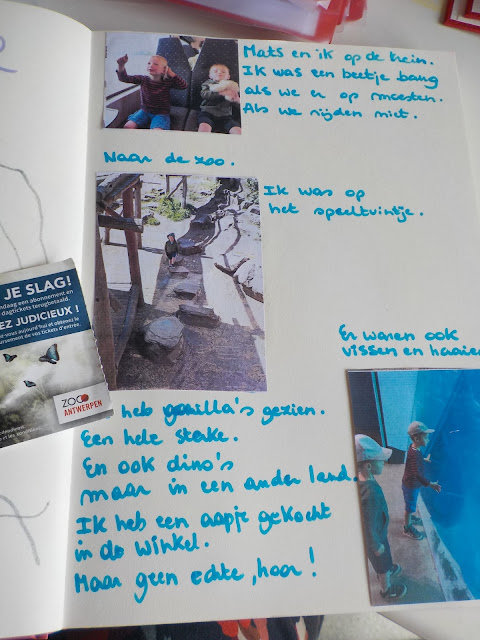 Mats en ik op de trein.
Ik was een beetje bang
als we er op moesten.
Als we rijden niet.
Naar de zoo.
Ik was op
het speeltuintje.
JE SLAG!
een abonnement en
dagtickets terugbetaald.
EZ JUDICIEUX !
aujourd'hui et obtenez le
de vos tickets d'entrée.
ZOO
ANTWERPEN
Er waren ook
vissen en haaien
heb gorilla's gezien.
Een hele sterke.
En ook dino's
maar in een ander land.
Ik heb een aapje gekocht
in de winkel.
Maar geen echte, hoor!